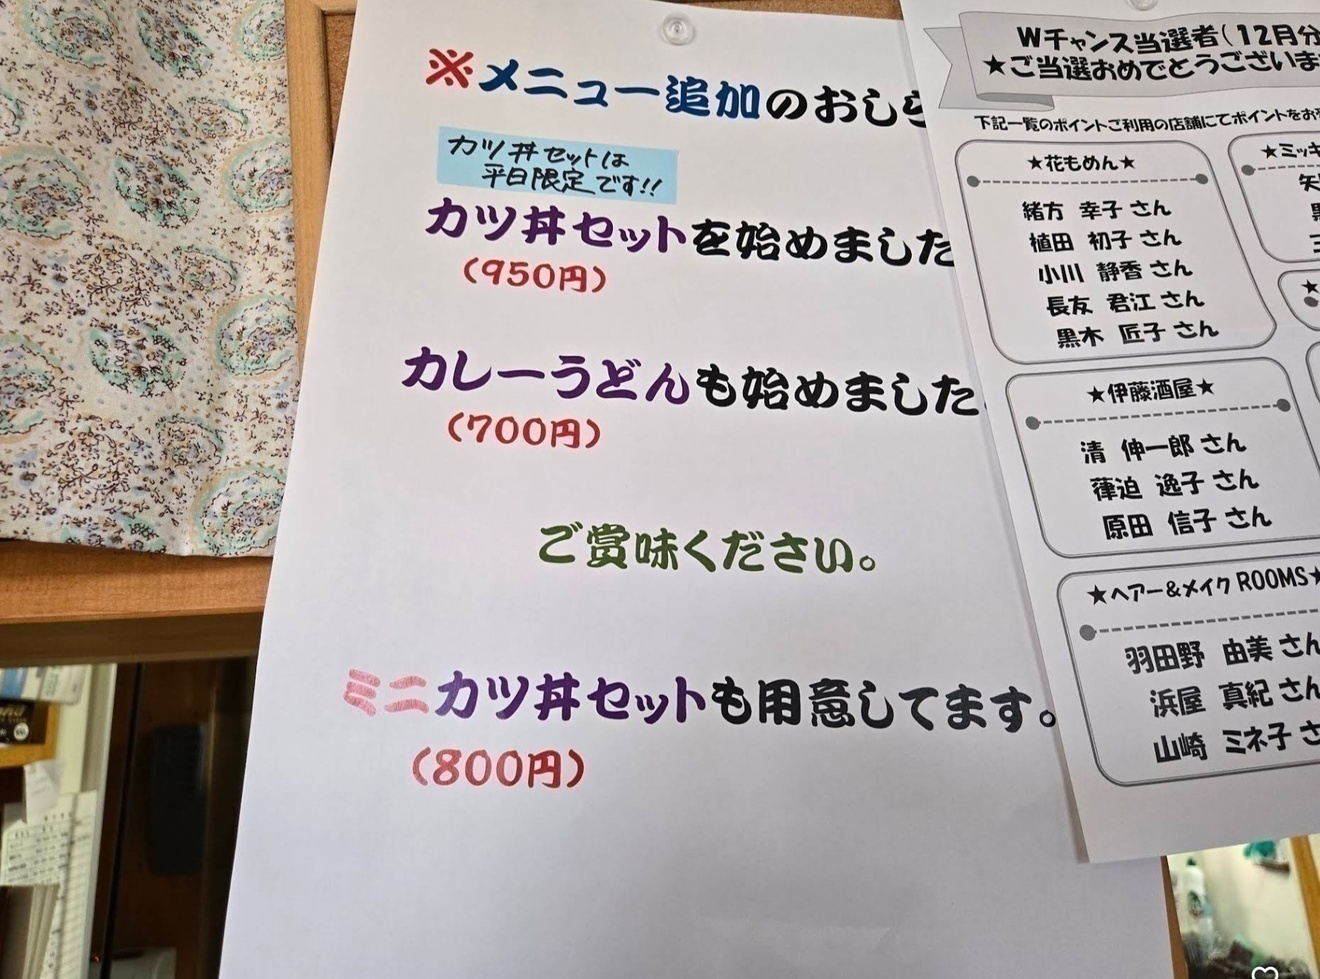 ※メニュー追加のおしら
カツ丼セットは
平日限定です!!
カツ丼セットを始めました
(950円)
カレーうどんも始めました
(700円)
ご賞味ください。
ミニカツ丼セットも用意してます。
(800円)
Wチャンス当選者(12月分
★ご当選おめでとうございま
下記一覧のポイントご利用の店舗にてポイントをお
★花もめん★
緒方 幸子さん
植田 初子さん
小川 静香さん
長友 君江さん
黒木 匠子さん
★伊藤酒屋★
清 伸一郎さん
迫 逸子さん
原田 信子さん
★ヘアー&メイク ROOMS★
羽田野 由美さん
浜屋 真紀さん
山崎 ミネ子さ
★ミッキ